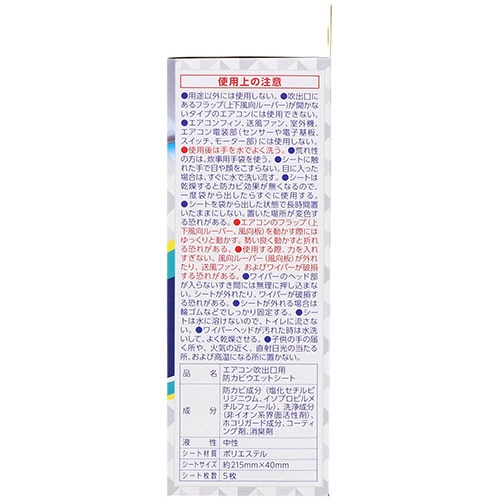 使用上の注意
●用途以外には使用しない。●吹出口に
あるフラップ(上下風向ルーバー)が開かな
いタイプのエアコンには使用できない。
●エアコンフィン、送風ファン、室外機、
エアコン電装部(センサーや電子基板、
スイッチ、モーター部)には使用しない。
●使用後は手を水でよく洗う。●荒れ性
の方は、炊事用手袋を使う。●シートに触
れた手で目や顔をこすらない。目に入った
場合は、すぐに水で洗い流す。●シートは
乾燥すると防カビ効果が無くなるので、
一度袋から出したらすぐに使用する。
●シートを袋から出した状態で長時間置
いたままにしない。置いた場所が変色す
る恐れがある。●エアコンのフラップ(上
下風向ルーバー、風向板)を動かす際には
ゆっくりと動かす。勢い良く動かすと折れ
る恐れがある。●使用する際、力を入れ
すぎない。風向ルーバー(風向板)が外れ
たり、送風ファン、およびワイパーが破損
する恐れがある。●ワイパーのヘッド部
が入らないすき間には無理に押し込まな
い。シートが外れたり、ワイパーが破損す
る恐れがある。●シートが外れる場合は
輪ゴムなどでしっかり固定する。●シー
トは水に溶けないので、トイレに流さな
い。●ワイパーヘッドが汚れた時は水洗い
して、よく乾燥させる。●子供の手の届
く所や、火気の近く、直射日光の当たる
所、および高温になる所に置かない。
品名 エアコン吹出口用
防カビウエットシート
成分 防カビ成分(塩化セチルピ
リジニウム、イソプロピルメ
チルフェノール)、洗浄成分
(非イオン系界面活性剤)、
ホコリガード成分、コーティ
ング剤、消臭剤
液性 中性
シート材質 ポリエステル
シートサイズ 約215mm×40mm
シート枚数 5枚